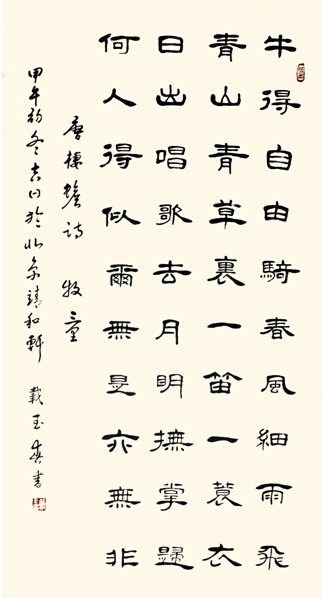 牛得自由騎春風細雨飛
青山青草裏一笛一蓑衣
日出唱歌去月明撫掌歸
何人得似爾無是亦無非
唐棲蟾詩 牧童
甲午初冬吉日於北京靖和軒 戴玉書